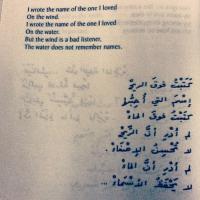 I wrote the name of the one I loved
On the wind.
I wrote the name of the one I loved
On the water.
But the wind is a bad listener,
The water does not remember names.
كَتَبْتُ فَوْقَ الرِيحْ
إسْمَ التي أُحِبُّها
كَتَبْتُ فَوْقَ الماءْ
لم أَدْرِ أنَّ الرِيحْ
لا تُحْسِنُ الإصْغاءْ
لم أَدْرِ أنَّ الماءْ
لا يَحْفَظُ الأسْماءْ ...